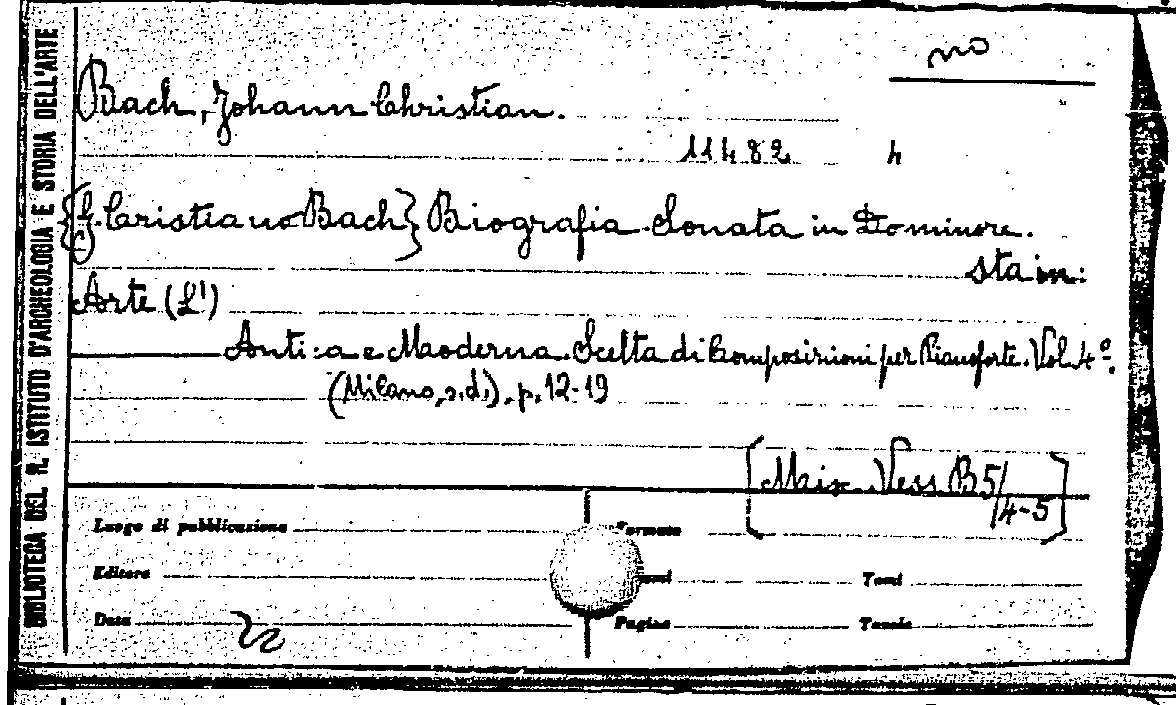 BIBLIOTECA DEL R. ISTITUTO D'ARCHEOLOGIA E STORIA DELL'ARTE
no
Bach, Johann Christian.
11482 h
{G. C. Cristiano Bach} Biografia-Sonata in Do minore.
sta in:
Arte (L')
Antica e Moderna. Scelta di Composizioni per Pianoforte. Vol. 4º.
(Milano, s.d.), p. 12-19
[Mus. Vess. B 5/4-5]
Luogo di pubblicazione
Formato
Editore
Tomi
Data
Pagine
Tavole